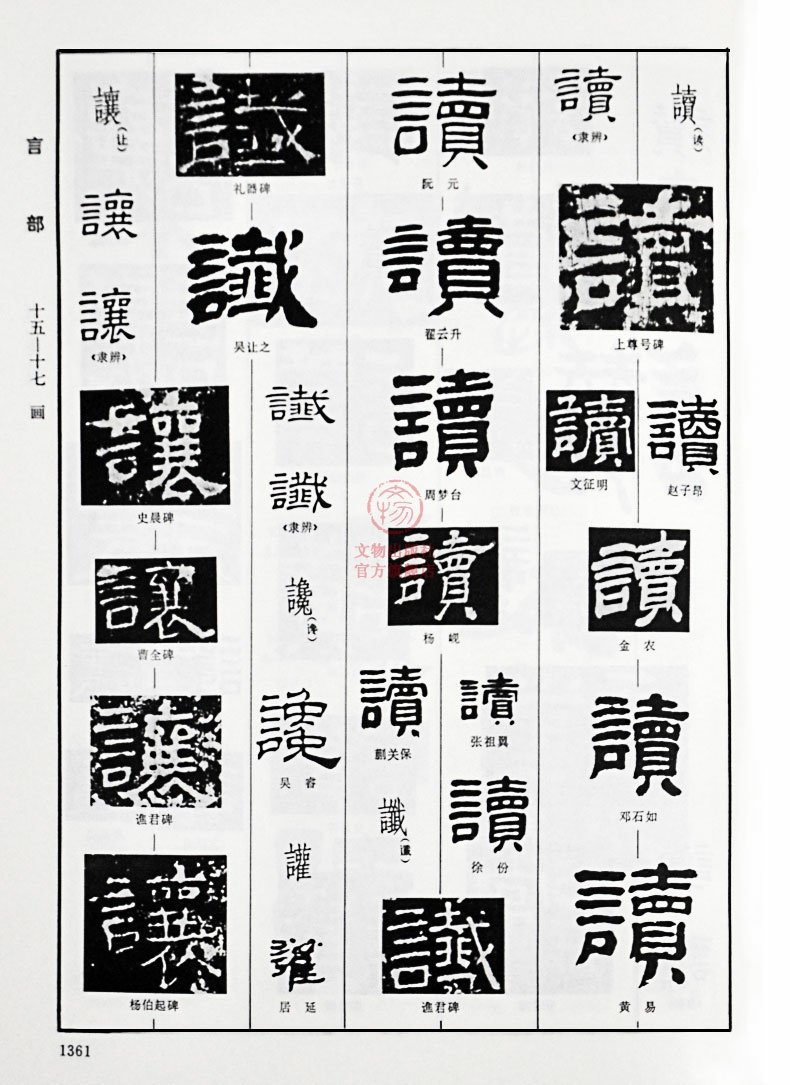 言部 十五—十七画
讀(读)
讀
《隶辨》
讀
上尊号碑
讀
赵子昂
讀
文征明
讀
金农
讀
邓石如
讀
黄易
讀
阮元
讀
翟云升
讀
周梦台
讀
杨岘
讀
张祖翼
讀
蒯关保
讀
徐份
讖(谶)
讖
譙君碑
讖
礼器碑
讖
吴让之
讖
讖
《隶辨》
讒(谗)
讒
吴睿
讙
讙
居延
讓(让)
讓
讓
《隶辨》
讓
史晨碑
讓
曹全碑
讓
譙君碑
讓
杨伯起碑
1361
官方旗舰店